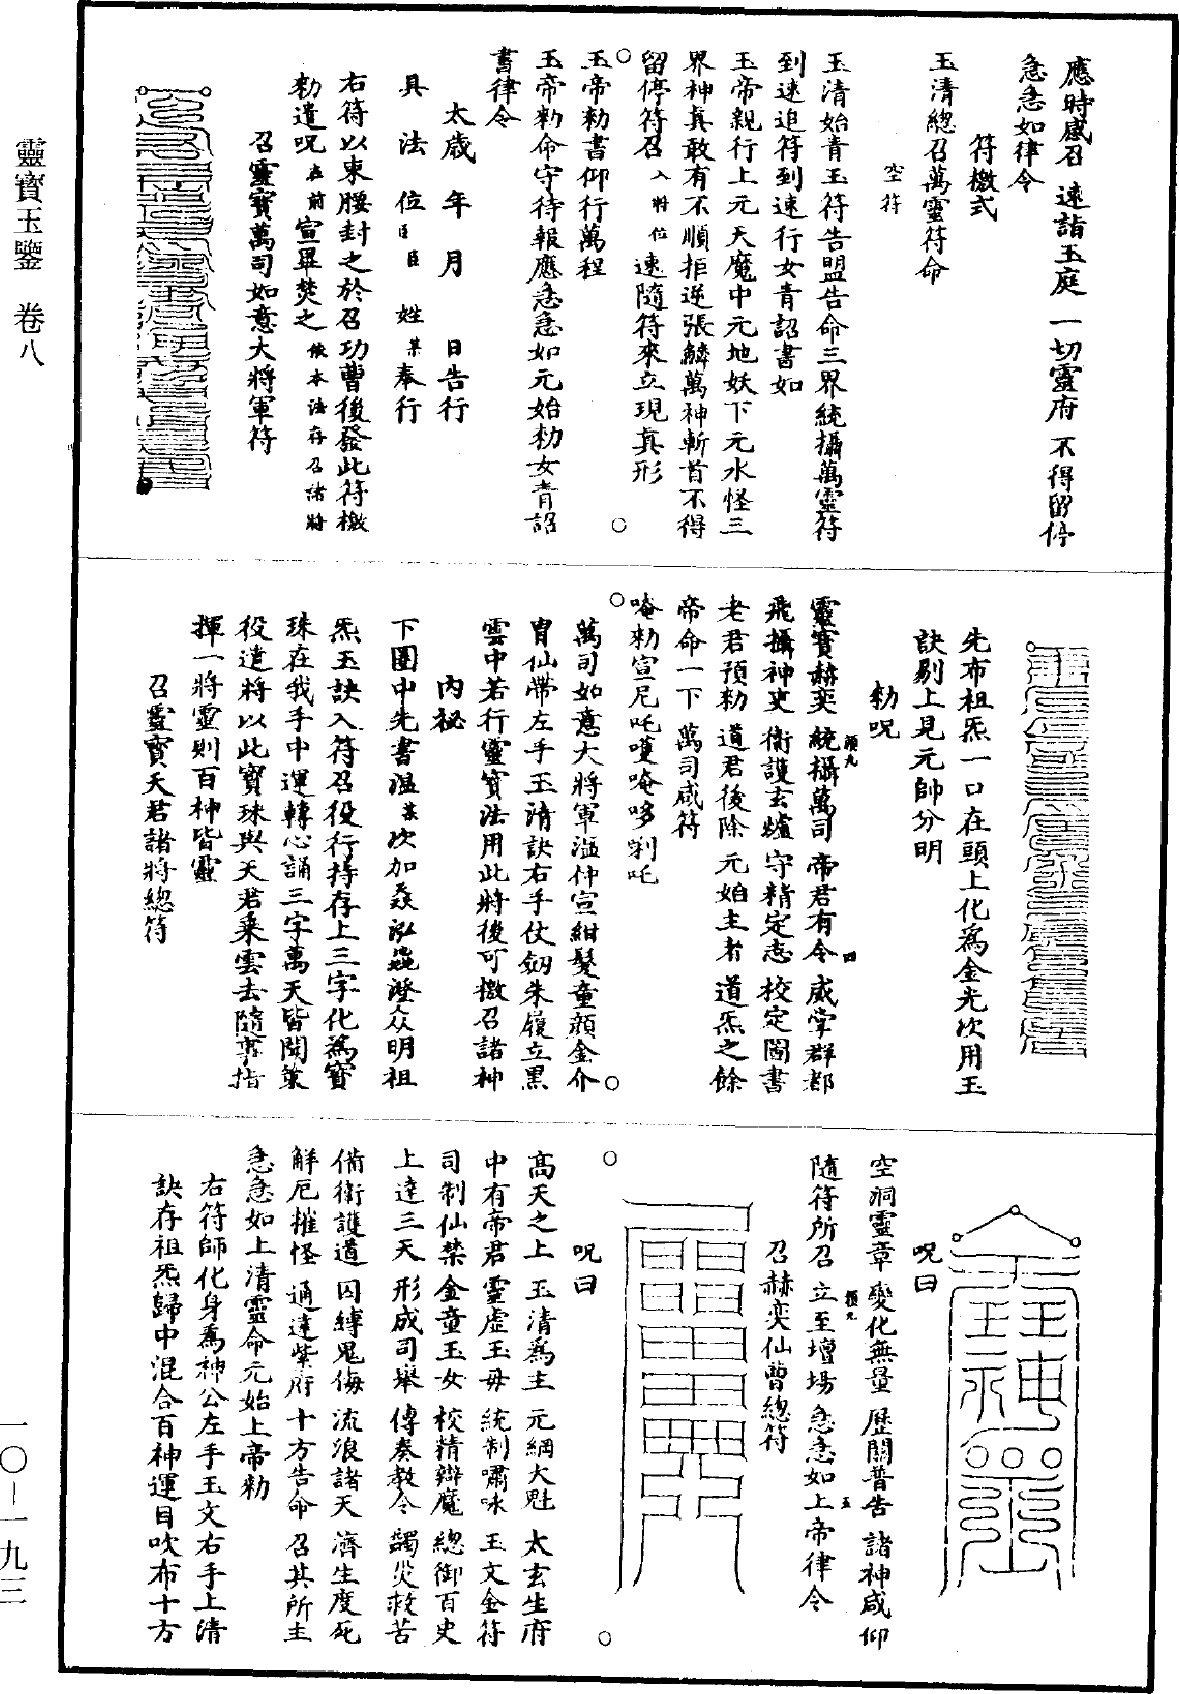 靈寶玉鑒 卷八
應時感召 速詣玉庭 一切靈府 不得留停
急急如律令
符檄式
玉清總召萬靈符命
空符
玉清始青玉符告盟告命三界統攝萬靈符
到速追符到速行女青詔書如
玉帝親行上元天魔中元地妖下元水怪三
界神真敢有不順拒逆張鱗萬神斬首不得
留停符召入將位速隨符來立現真形
玉帝勑書仰行萬程
玉帝勑命守待報應急急如元始勑女青詔
書律令
太歲 年 月 日告行
具 法 位臣 姓某奉行
右符以束腰封之於召功曹後發此符檄
勑遣呪在前宣畢焚之依本法存召諸將
召靈寶萬司如意大將軍符
先布祖炁一口在頭上化為金光次用玉
訣剔上見元帥分明
勑呪
靈寶赫奕 統攝萬司 帝君有令 威掌群都
飛攝神吏 衛護玄爐 守精定志 校定圖書
老君預勑 道君後除 元始主者 道炁之餘
帝命一下 萬司咸符
唵勑宣尼吒嚄唵哆唎吒
萬司如意大將軍溫仲宣紺髮童顔金介
冑仙帶左手玉清訣右手仗劒朱履立黑
雲中若行靈寶法用此將後可檄召諸神
內祕
下圈中先書溫某次加猋泓驫澄众明祖
炁玉訣入符召役行持存上三字化為寶
珠在我手中運轉心誦三字萬天皆聞策
役遣將以此寶珠與天君乘雲去隨事指
揮一將靈則百神皆靈
召靈寶天君諸將總符
呪曰
空洞靈章 變化無量 歷關普告 諸神咸仰
隨符所召 立至壇場 急急如上帝律令
召赫奕仙曹總符
呪曰
高天之上 玉清為主 元綱大魁 太玄生府
中有帝君 靈虛玉毋 統制嘯咏 玉文金符
司制仙禁 金童玉女 校精辯魔 總御百史
上達三天 形成司舉 傳奏教令 蠲災救苦
備衛護道 囚縛鬼侮 流浪諸天 濟生度死
解厄摧怪 通達紫府 十方告命 召其所主
急急如上清靈命元始上帝勑
右符師化身為神公左手玉文右手上清
訣存祖炁歸中混合百神運目吹布十方
一〇—一九三